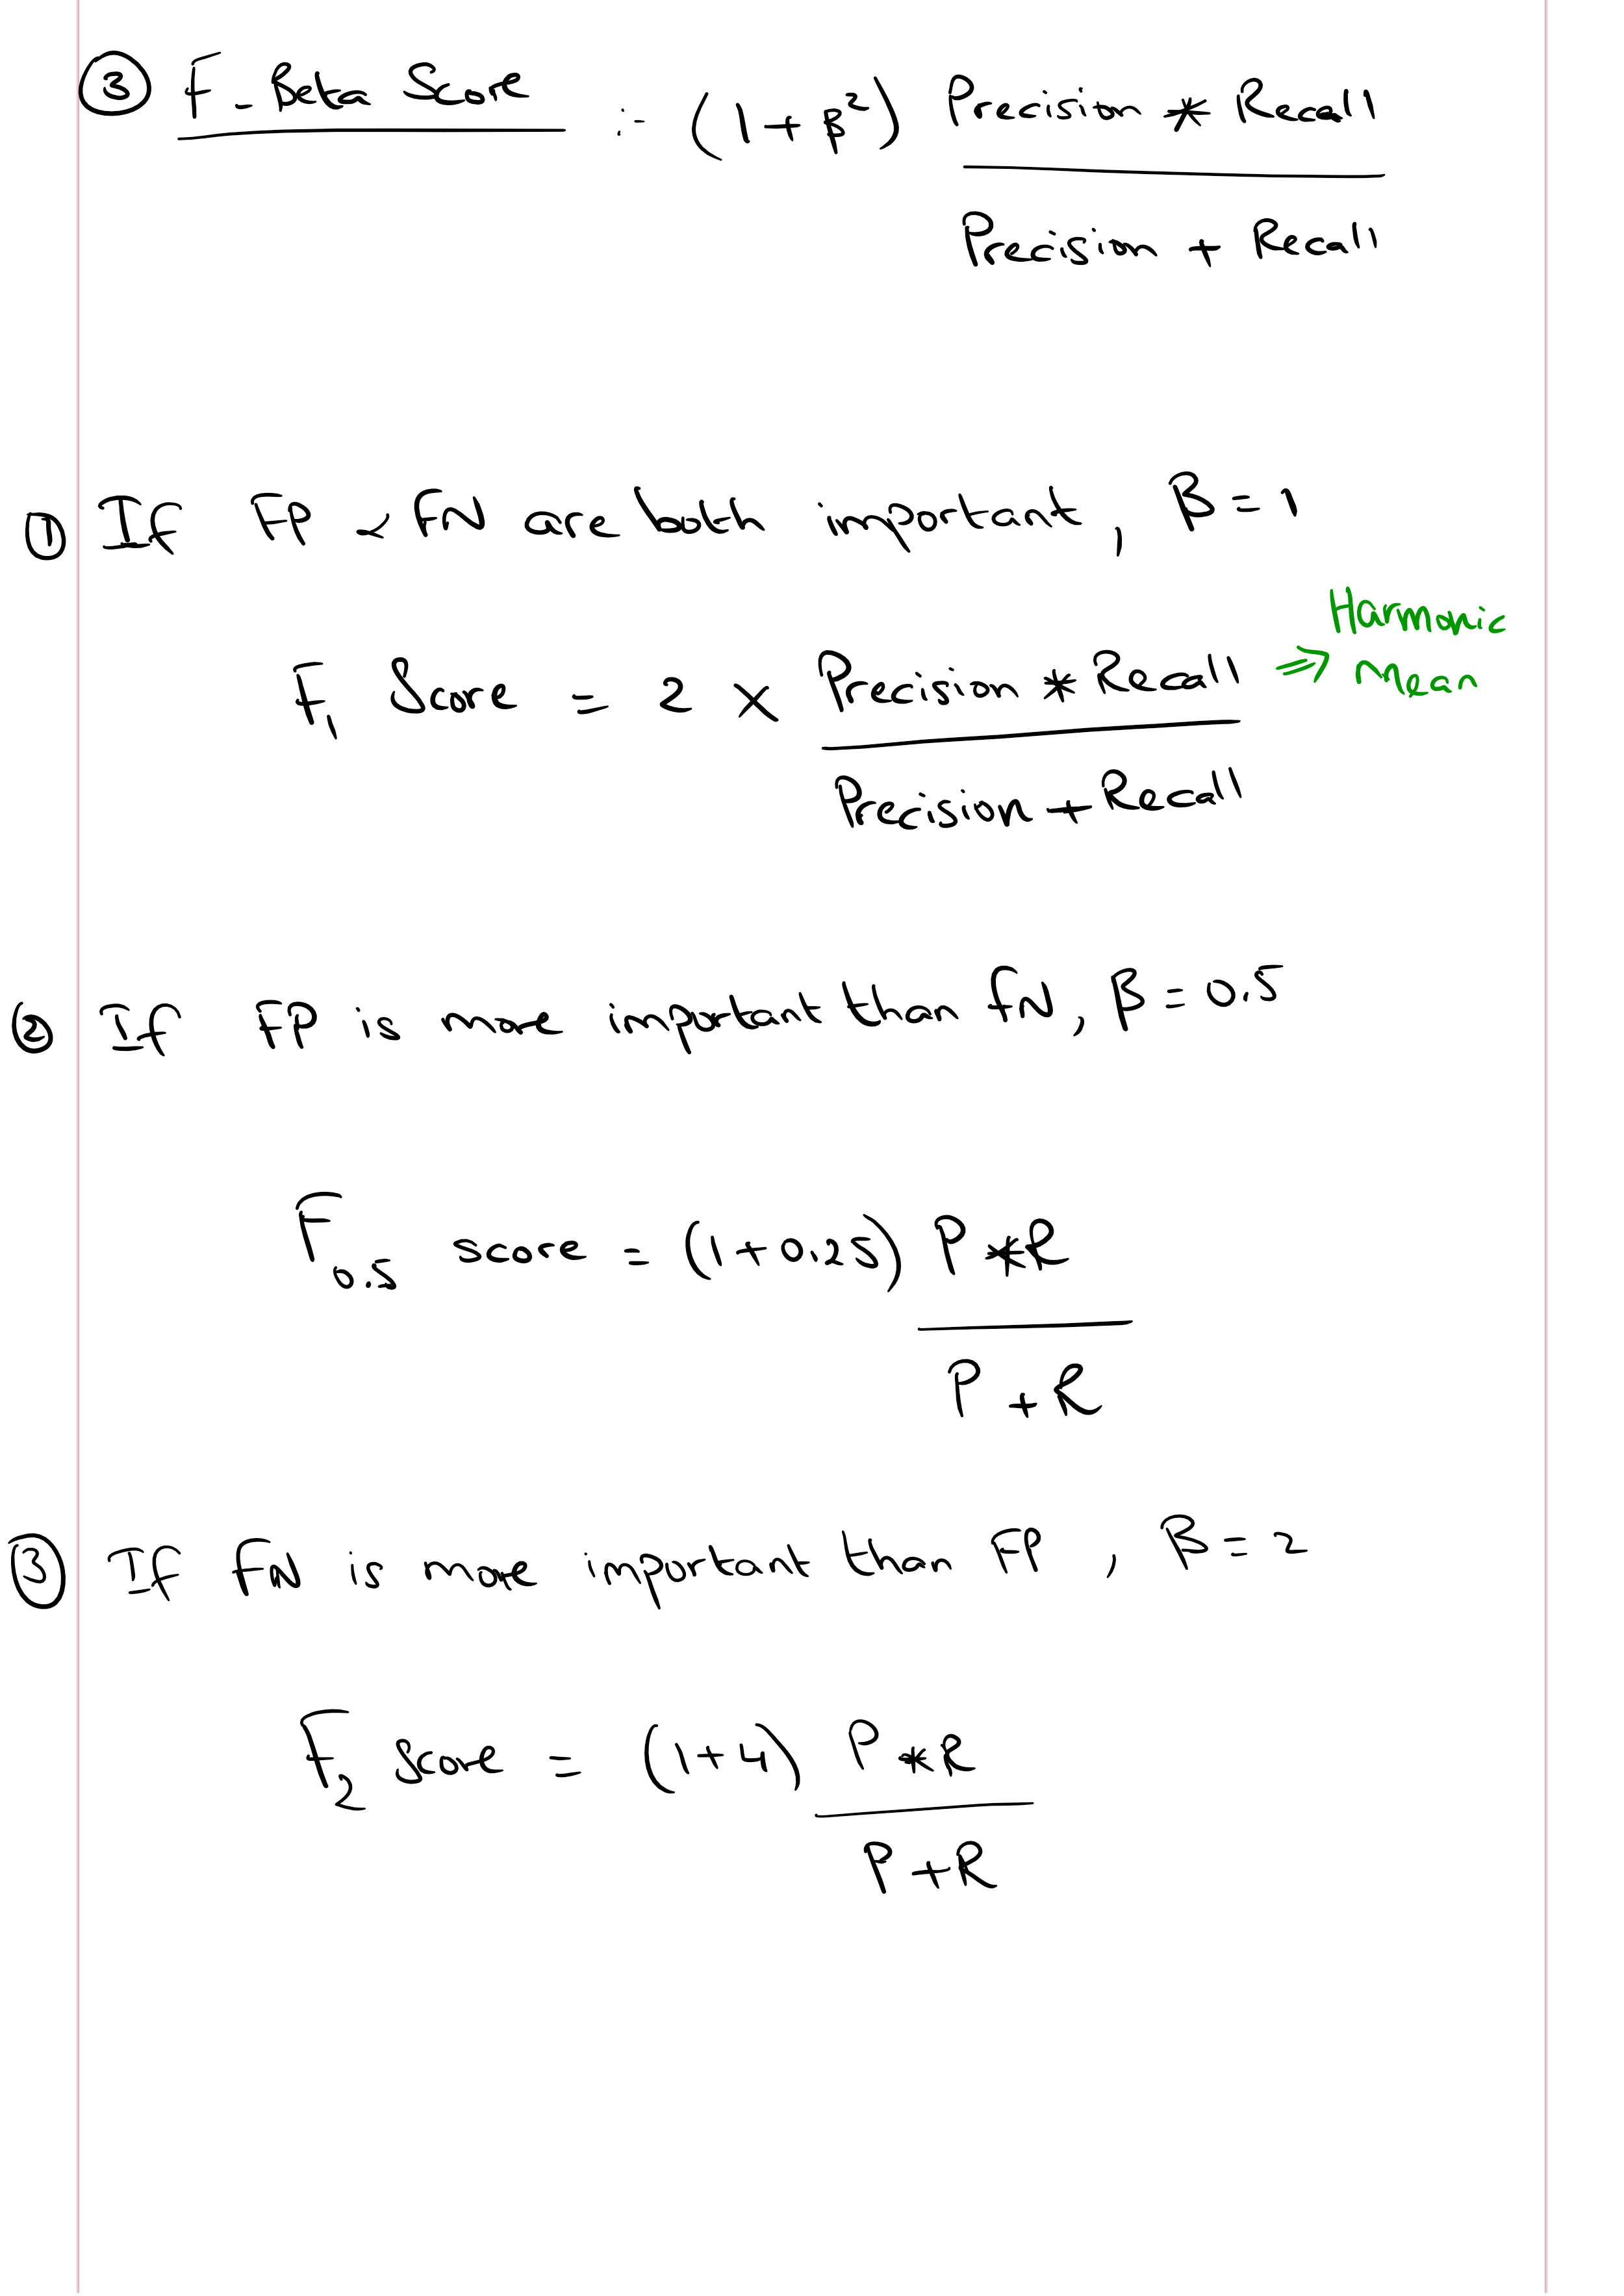 ③ F-Beta Score :- (1+β²) Precision * Recall
Precision + Recall
① If FP & FN are both important, β = 1
F₁ Score = 2 × Precision * Recall ⇒ Harmonic Mean
Precision + Recall
② If FP is more important than FN, β = 0.5
F₀.₅ score = (1+0.25) P * R
P + R
③ If FN is more important than FP, β = 2
F₂ Score = (1+4) P * R
P + R